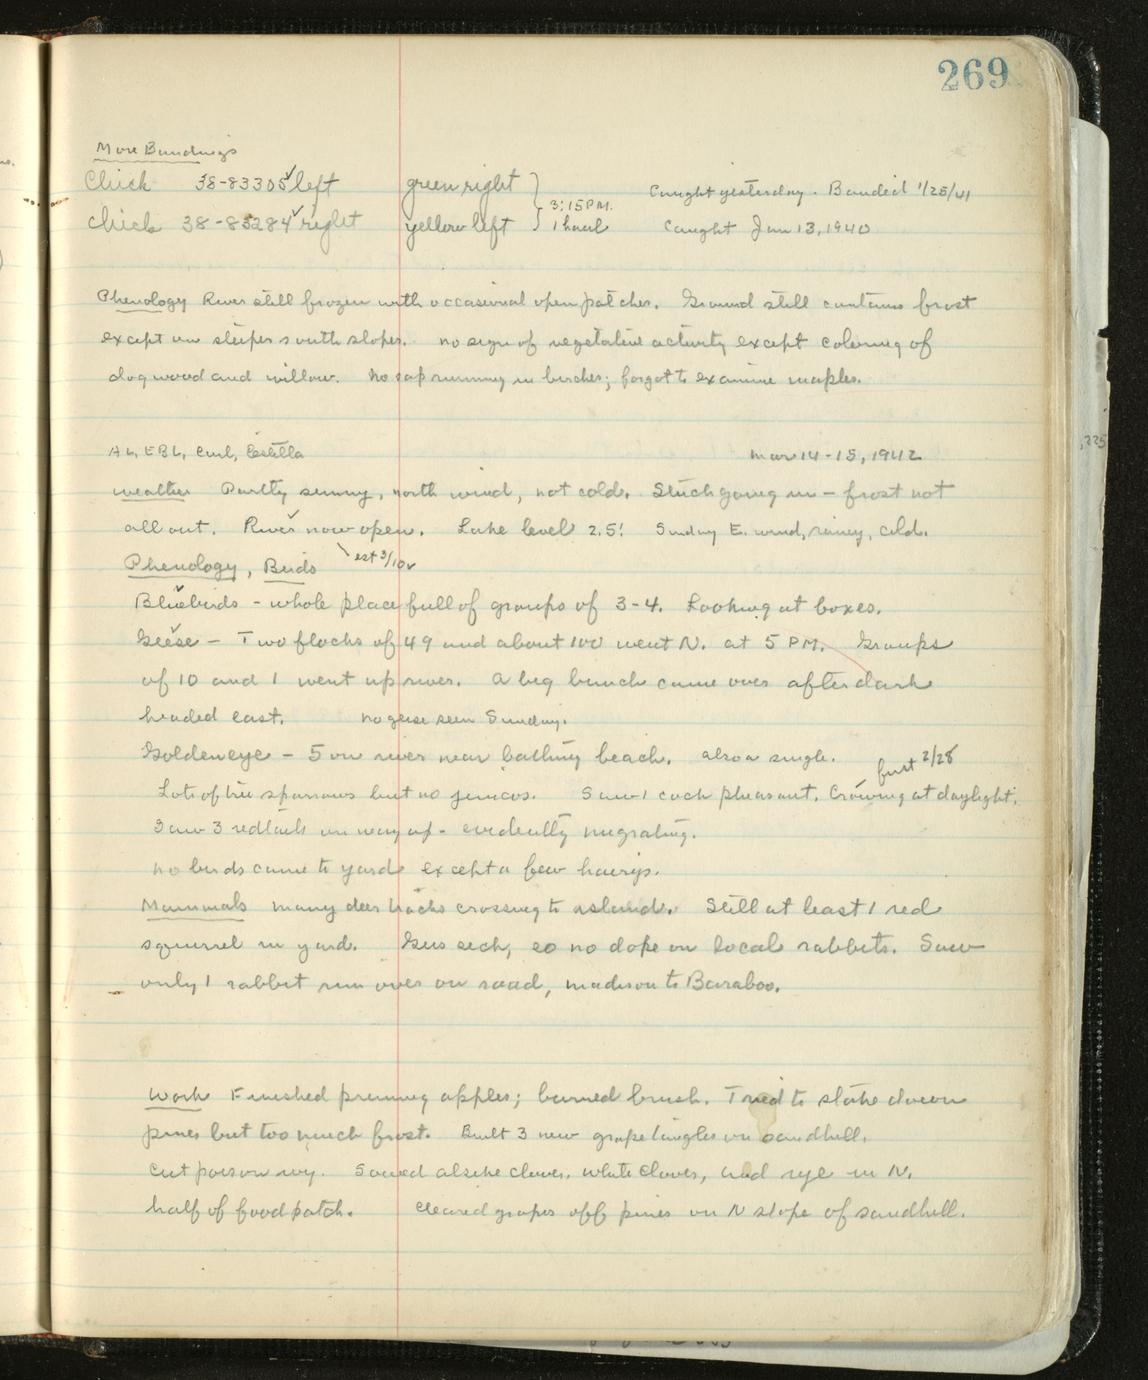 269
More Bandings
Chick 38-83305 left green right } 3:15 P.M. Caught yesterday. Banded 1/25/41
Chick 38-83284 right yellow left } 1 haul Caught Jan 13, 1940
Phenology River still frozen with occasional open patches. Ground still contains frost
except on steeper south slopes. No sign of vegetative activity except coloring of
dogwood and willow. No sap running in birches; forgot to examine maples.
AL, EBL, Carl, Estella Mar 14-15, 1942
Weather Partly sunny, north wind, not cold. Slush going in - frost not
all out. River now open. Lake level 2.5! Sunday E. wind, rainy, cold.
est 3/10
Phenology, Birds
Bluebirds - whole place full of groups of 3-4. Looking at boxes.
Geese - Two flocks of 49 and about 100 went N. at 5 PM. Groups
of 10 and 1 went up river. A big bunch came over after dark
headed east. No geese seen Sunday.
Goldeneye - 5 on river near bathing beach. Also a single.
first 2/28
Lots of tree sparrows but no juncos. Saw 1 cock pheasant. Crowing at daylight.
Saw 3 redtails on way up - evidently migrating.
No birds came to yard except a few hairys.
Mammals Many deer tracks crossing to island. Still at least 1 red
squirrel in yard. Gus sick, so no dope on local rabbits. Saw
only 1 rabbit run over on road, Madison to Baraboo.
Work Finished pruning apples; burned brush. Tried to stake down
pines but too much frost. Built 3 new grape tangles on sandhill.
Cut poison ivy. Sowed alsike clover, white clover, and rye in N.
half of food patch. Cleared grapes off pines on N slope of sandhill.